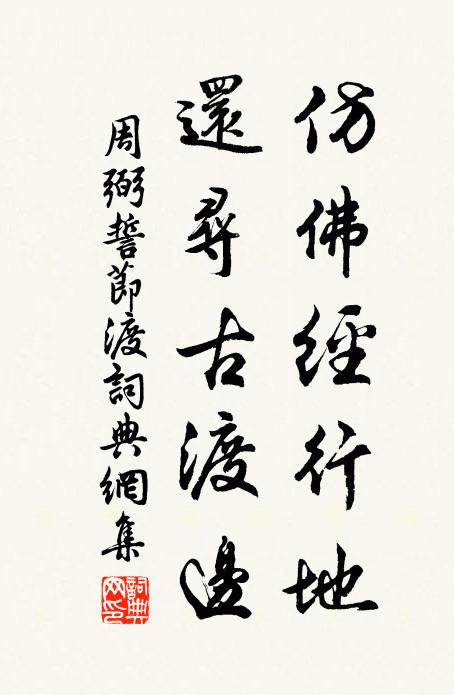 仿佛經行地
還尋古渡邊
周弼誓節渡詞典網集
詞典
网印